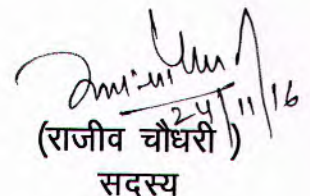 24/11/16
(राजीव चौधरी)
सदस्य